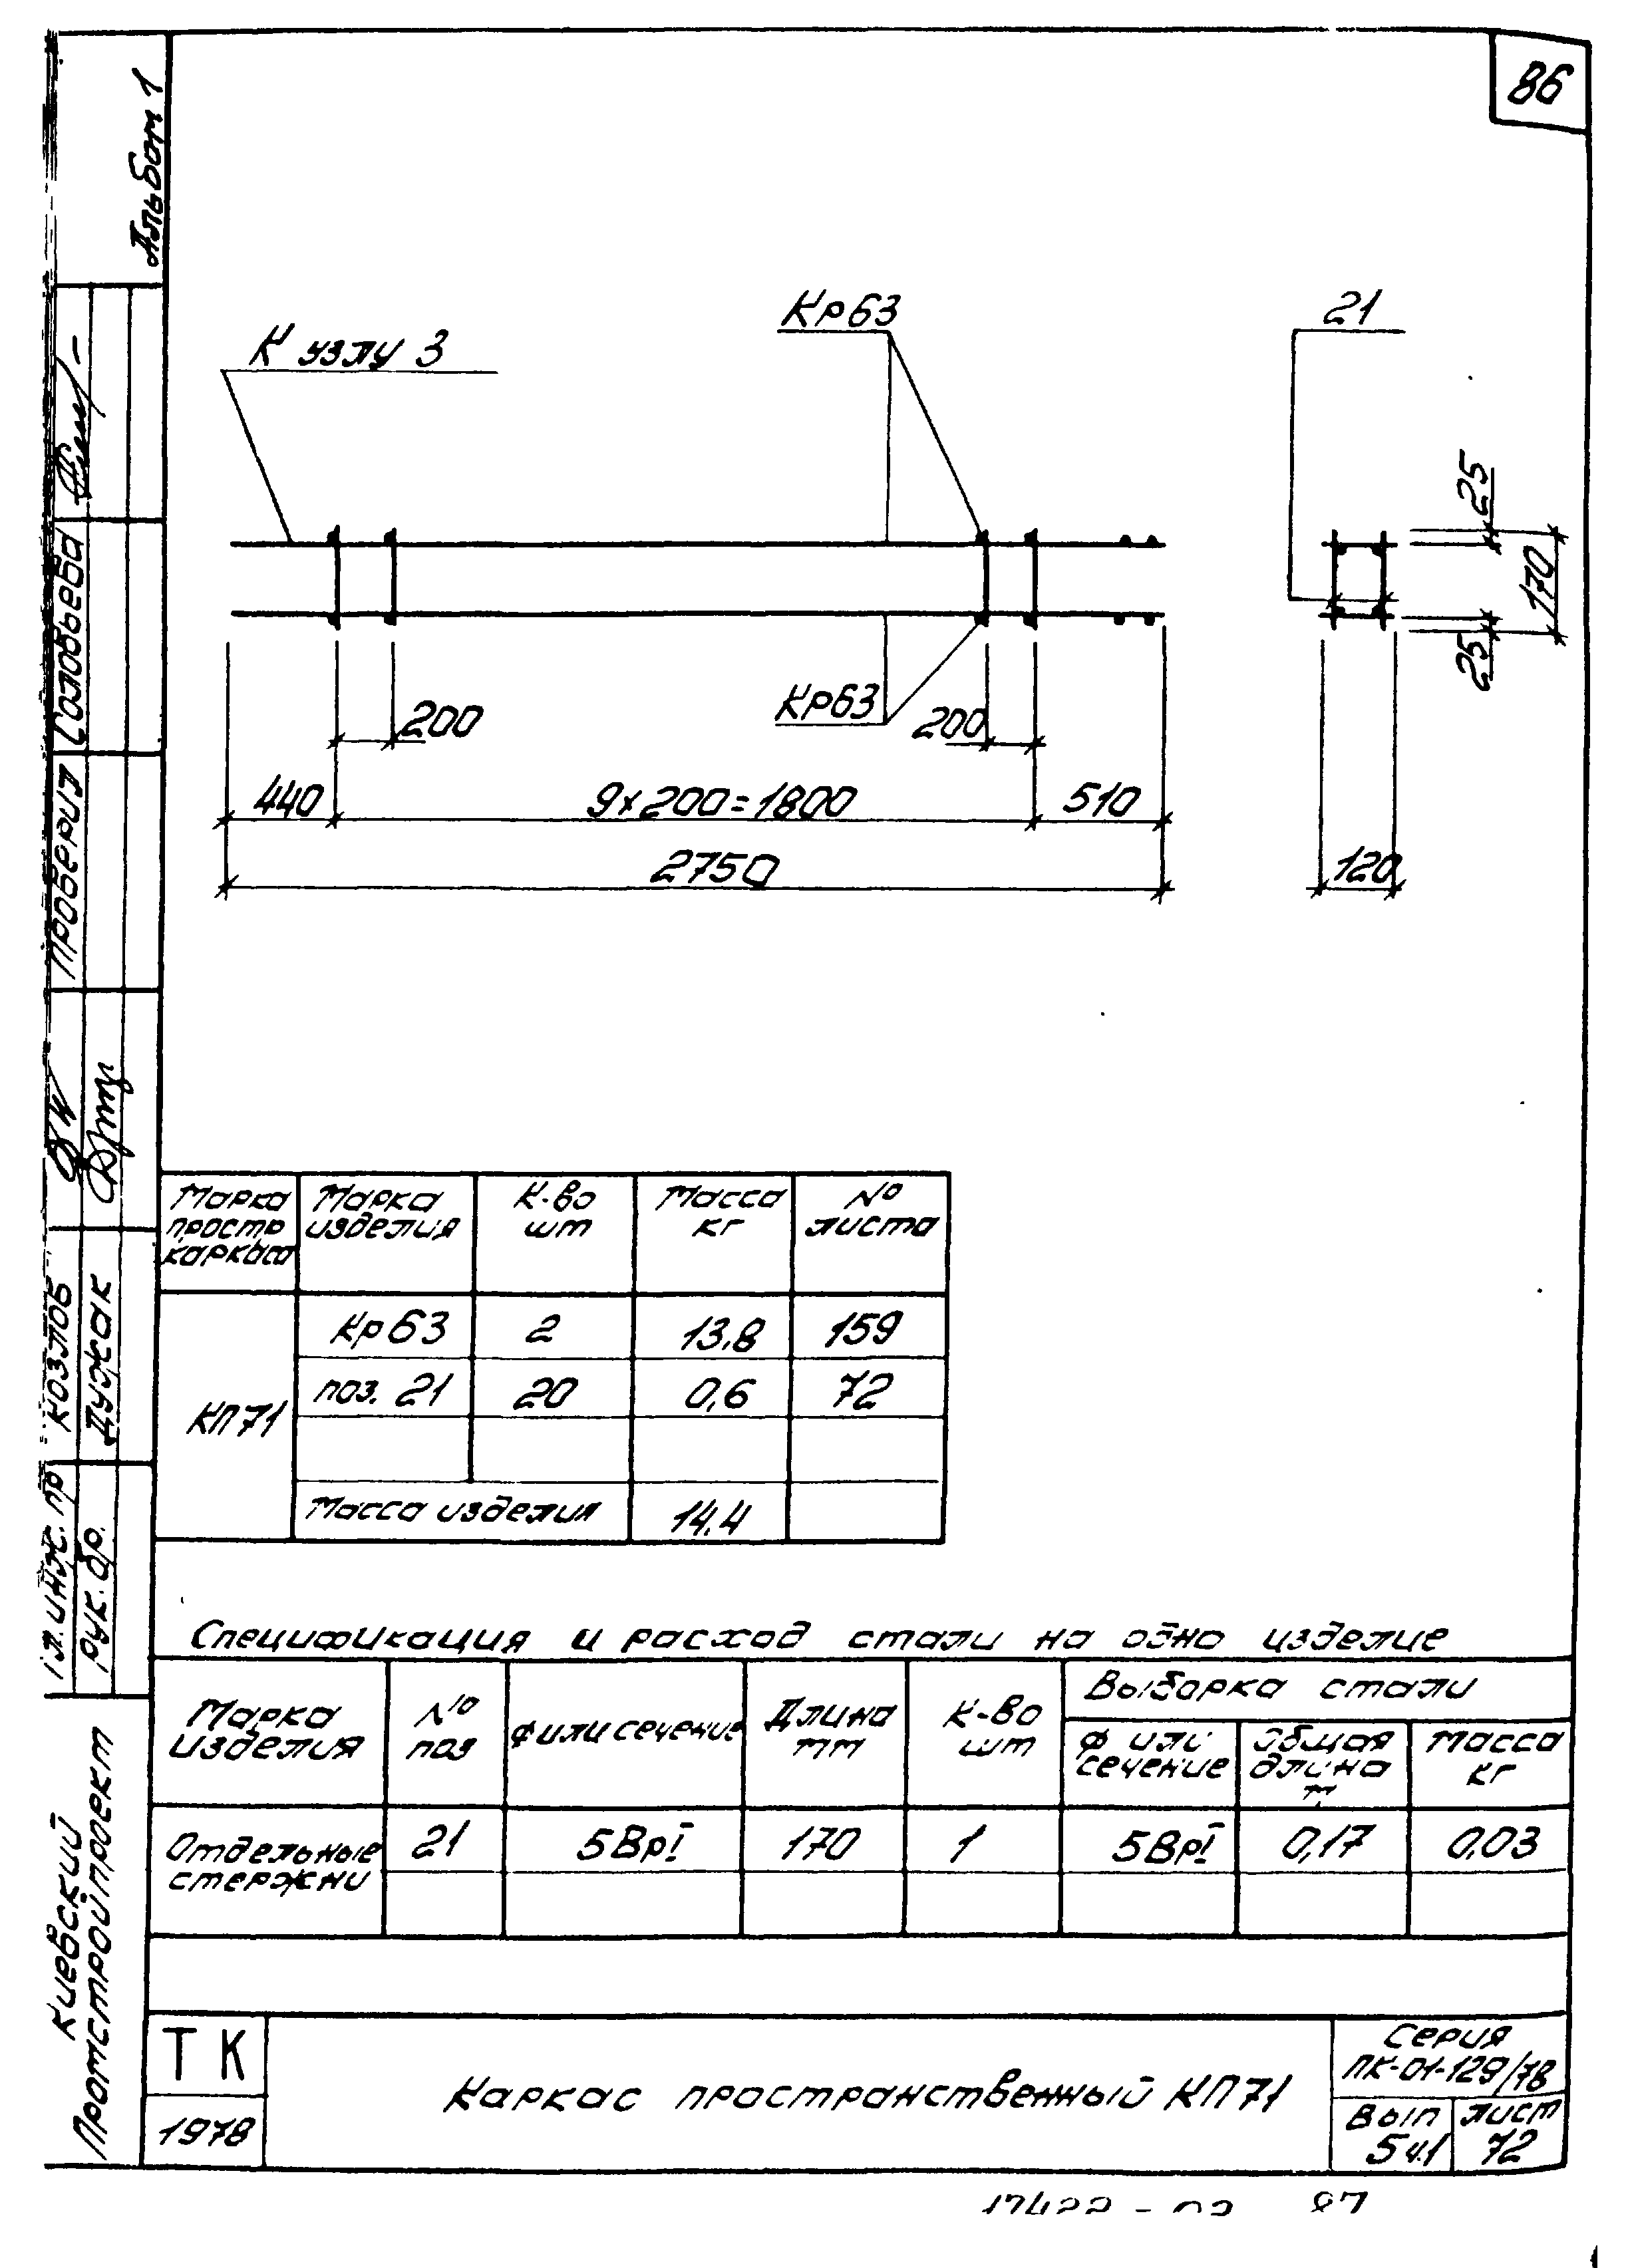 86
Альбом 1
К узлу 3
Кр63
21
25
170
25
200
Кр63
200
440
9х200=1800
510
2750
120
Марка простр каркаса
Марка изделия
К-во шт
Масса кг
№ листа
КП71
Кр63 2 13,8 159
поз. 21 20 0,6 72
Масса изделия 14.4
Спецификация и расход стали на одно изделие
Марка изделия
№ поз
Ф или сечение
Длина мм
К-во шт
Выборка стали
Ф или сечение
Общая длина м
Масса кг
Отдельные стержни
21 5ВрI 170 1 5ВрI 0,17 0,03
ТК
1978
Каркас пространственный КП71
Серия
ПК-01-129/78
Вып 5ч.1
Лист 72
Проверил Соловьева
Гл. инж. пр Козлов
Рук. бр. Дужак
Киевский
Промстройпроект